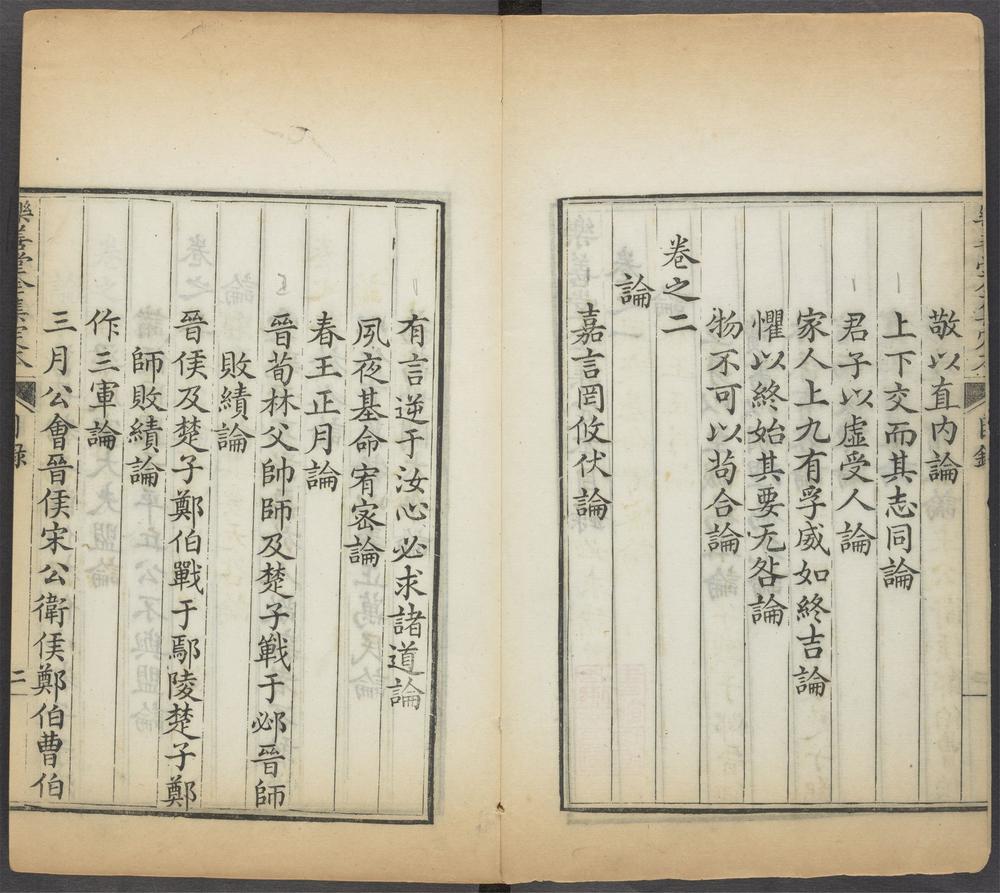 敬以直内論
上下交而其志同論
君子以虚受人論
家人上九有孚威如終吉論
懼以終始其要无咎論
物不可以苟合論
卷之二
論
嘉言罔攸伏論
有言逆于汝心必求諸道論
夙夜基命宥宻論
春王正月論
晉荀林父帥師及楚子戰于邲晉師
敗績論
晉侯及楚子鄭伯戰于鄢陵楚子鄭
師敗績論
作三軍論
三月公會晉侯宋公衛侯鄭伯曹伯
樂善堂全集定本
目錄
二